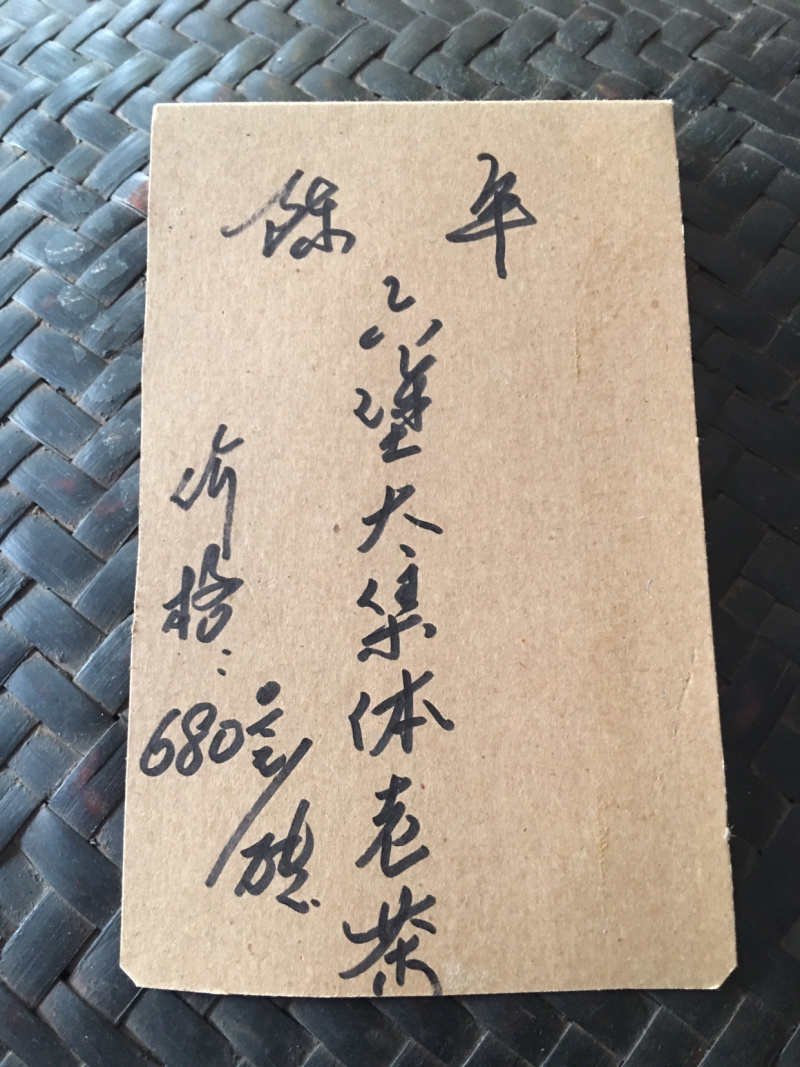 陈年
六堡大集体老茶
价格：
680元/砖